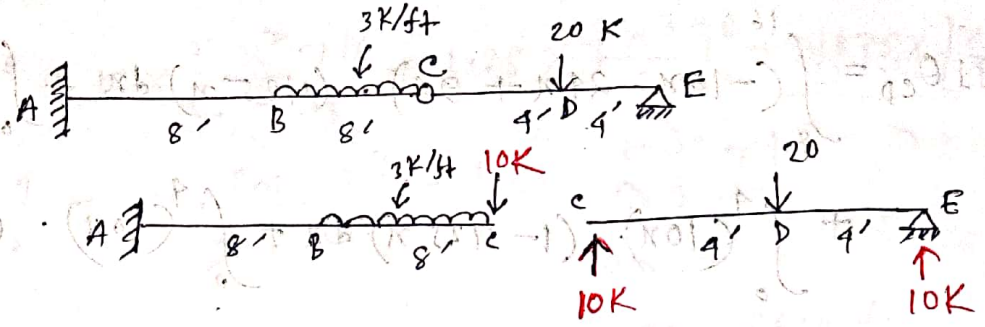 3K/ft
20 K
A 8' B 8' C 4' D 4' E
3K/ft 10K
20
A 8' B 8' C
C 4' D 4' E
10K 10K